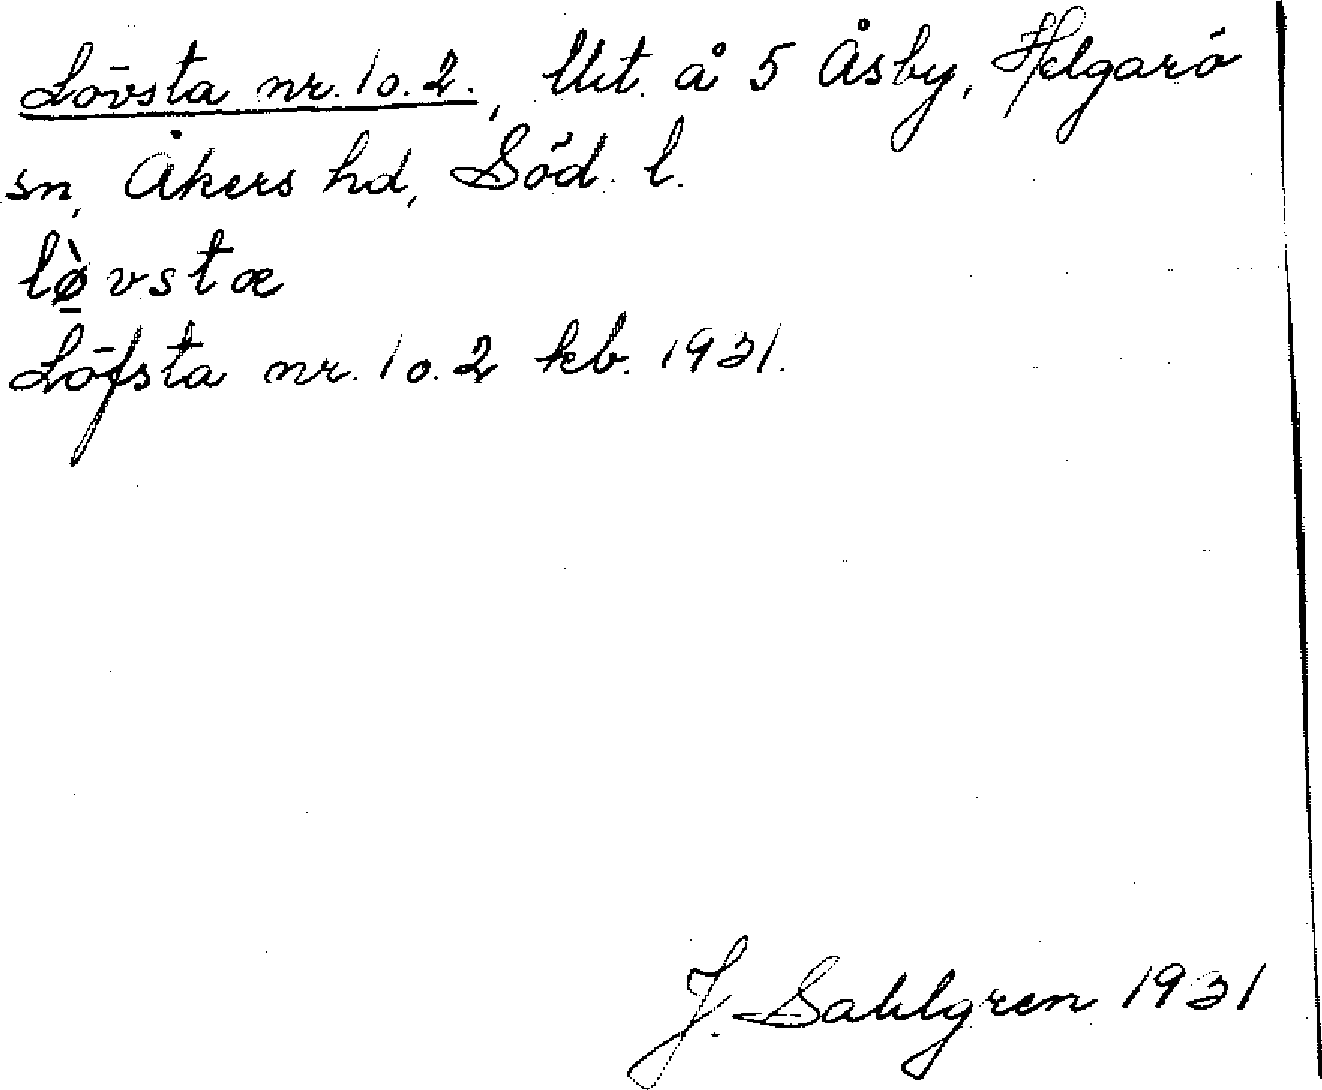 Lövsta nr. 1 o. 2., Utt. å 5 Åsby, Helgarö
sn, Åkers hd, Söd. l.
lø̱̀vstæ
Löfsta nr. 1 o. 2 kb. 1931.
J. Sahlgren 1931